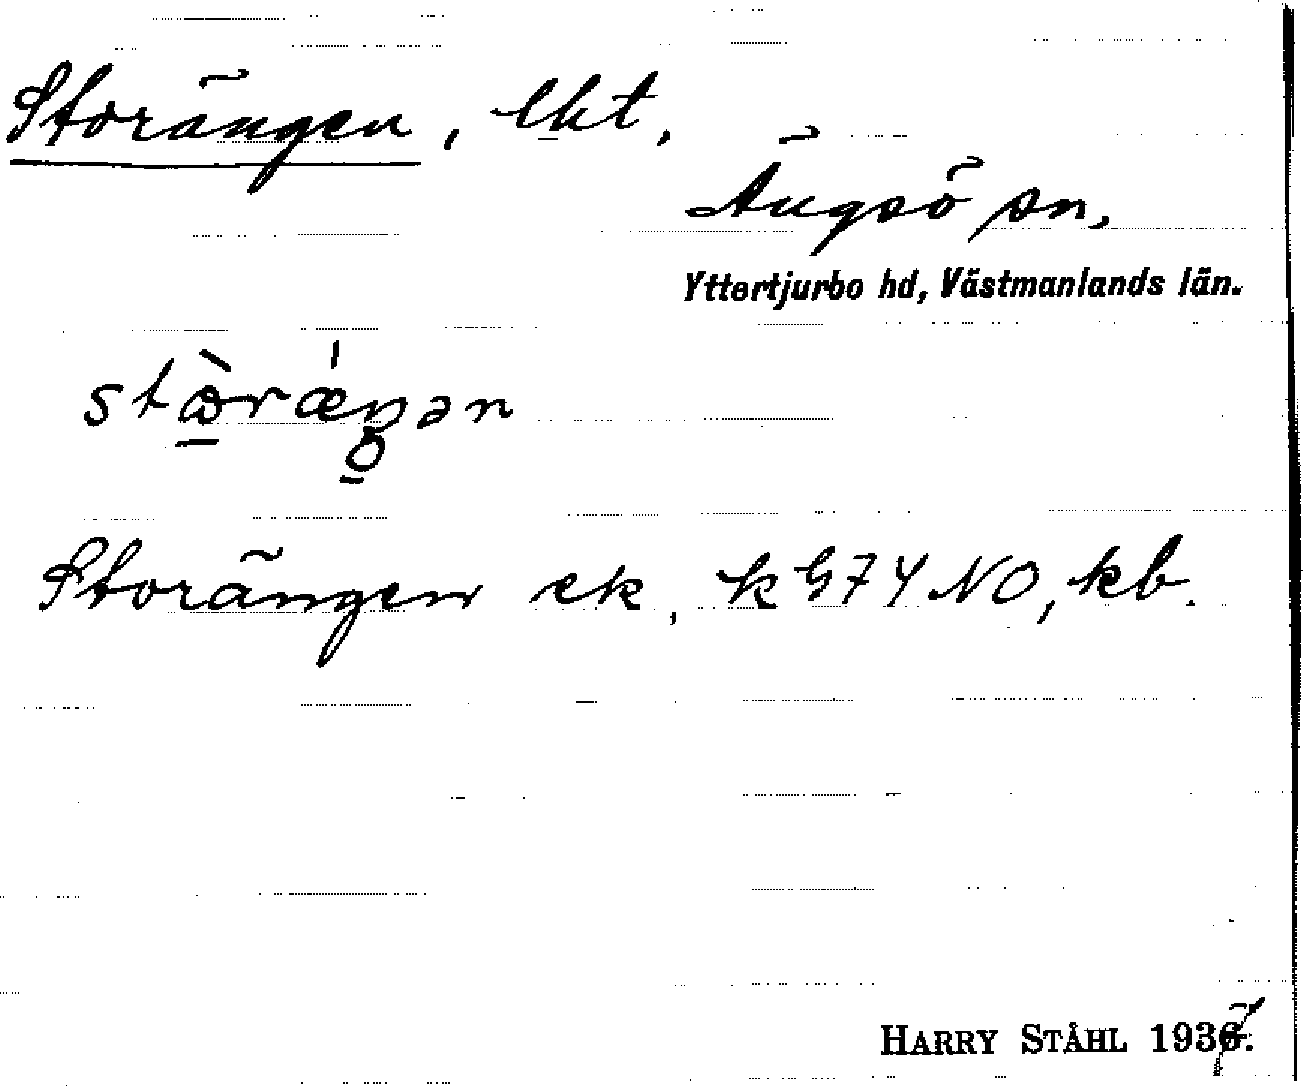 Storängen, lht,
Ängsö sn,
Yttertjurbo hd, Västmanlands län.
Storängen ek, k G74 NO, kb.
HARRY STÅHL 1937.